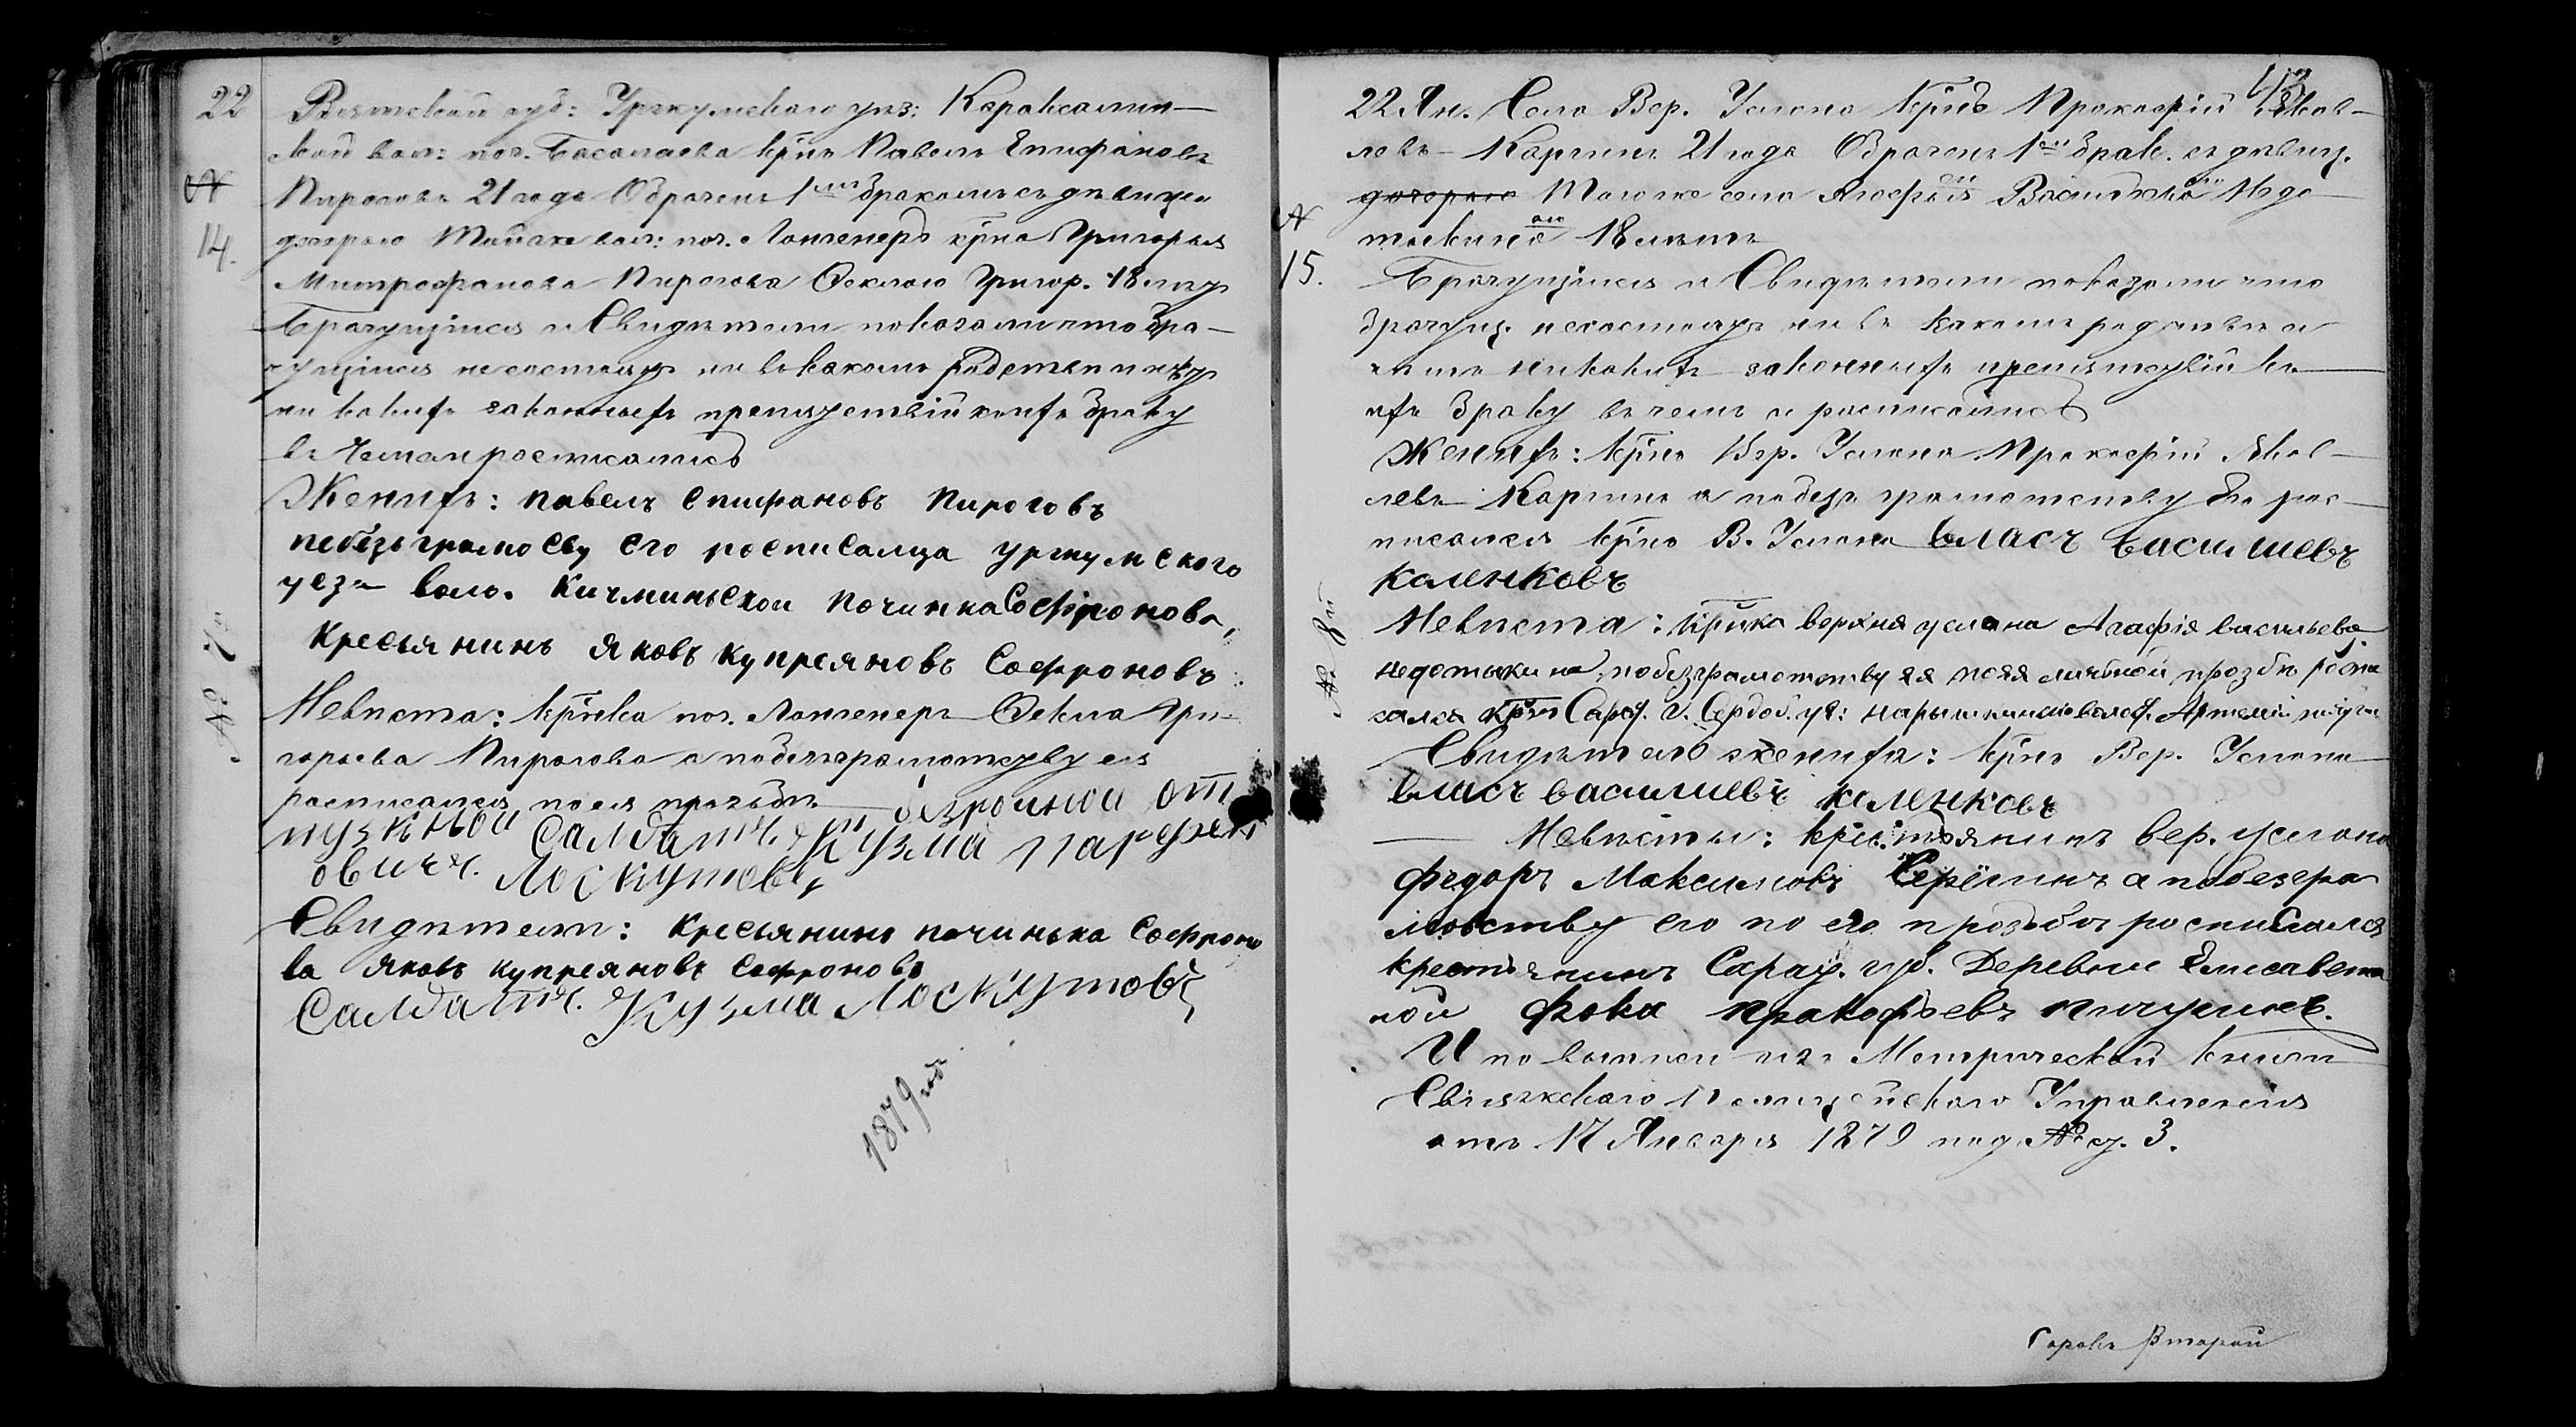 22
Вятской губ: Уржумскаго уѣз:
ской вол: поч. Басалаева крнъ Павелъ Епифановъ
№
Пироговъ 21 года Обрачен 1мъ бракомъ съ дѣвицею
14.
дочерью Тойже вол: поч. крна Григорья
Митрофанова Пирогова Феклою Григор. 18 лѣтъ
Брачущіися и Свидѣтели показали что бра-
чущіися не состоятъ ни въ какомъ родствѣ и нѣтъ
ни какихъ законныхъ препятствій къ ихъ браку
въ чемъ и росписались
Женихъ: павелъ епифановъ Пироговъ
небезъ его росписался уржумского
уез воло. Кичминьской починка Софронова,
Крестьянинъ яковъ купрсяновъ Софроновъ
№ 7й
Невѣста: крнка поч. Фекла Гри-
горьева Пирогова а побезграмотству ея
росписался по ея прозьбѣ безрошной от
пузкной Салдатъ. Кузма Парфен
овичъ. Лоскутовъ
Свидѣтели: Крестьянинъ починька Софроно
ва Яковъ купрсяновъ Софроновъ
Салдатъ. Кузма Лоскутовъ
1879 год
43
22 Ян. Села Вер. Услона Крнъ Прокофій Яков-
левъ Каргинъ 21 года Обрачен 1мъ брак. съ дѣвиц.
дочерью Тогоже села Агафьей Васильевой Недо-
№
тыкиной 18 лѣтъ
15.
Брачущіися и Свидѣтели показали что
брачущ. несостоятъ ни въ какомъ родствѣ и
нѣтъ никакихъ законныхъ препятствій къ
ихъ браку въ чемъ и росписались
Женихъ: крнъ Вер. Услона Прокофій Яков-
левъ Каргинъ а побезъ грамотству Его рос-
писался крнъ В. Услона Власъ Василиевъ
Каленковъ
№ 8й
Невѣста: крнка верхня услона Агафія васильева
недотыкина, побезграмотству ея поея личной прозбѣ роспи
сался крнъ Сарат. г. Сердоб. уѣ: Артемій
Свидѣтель жениха: крнъ Вер. Услона
Власъ василиевъ Каленковъ
Невѣсты: крестьянинъ вер. услона
Федоръ Максимовъ Серёгинъ а побезгра
мотству его по его прозьбѣ росписался
крестьянинъ Сарат. губ. Деревни Елисавети
ной Фока Пракофьевъ Пичугинъ.
И по выписи изъ Метрической книги
Свіяжскаго Полицейскаго Управленія
отъ 17 Января 1879 под № ст. 3.
Сорокъ Второй